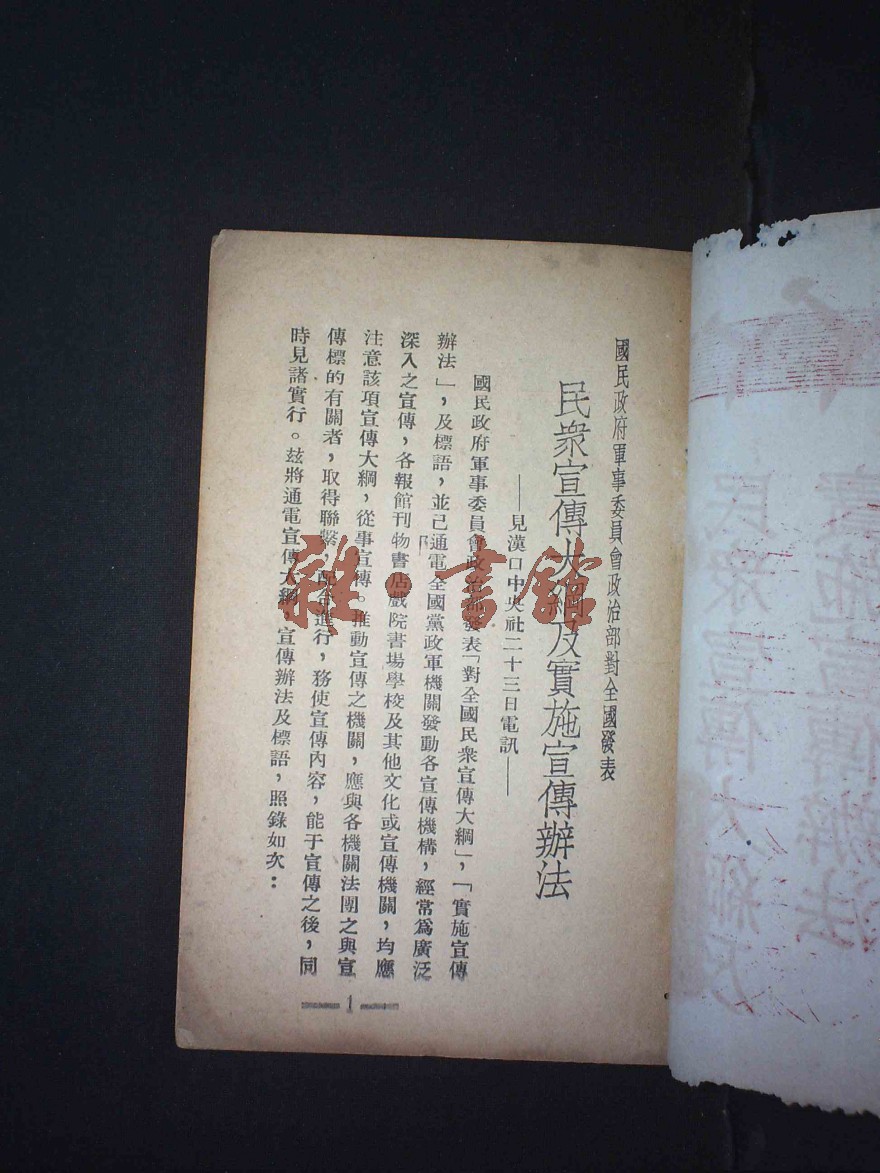 國民政府軍事委員會政治部對全國發表
民衆宣傳大綱及實施宣傳辦法
——見漢口中央社二十三日電訊——
國民政府軍事委員會政治部發表「對全國民衆宣傳大綱」，「實施宣傳
辦法」，及標語，並已通電全國黨政軍機關發動各宣傳機構，經常爲廣泛
深入之宣傳，各報館刊物書店戲院書場學校及其他文化或宣傳機關，均應
注意該項宣傳大綱，從事宣傳。推動宣傳之機關，應與各機關法團之與宣
傳標的有關者，取得聯繫，配合進行，務使宣傳內容，能于宣傳之後，同
時見諸實行。茲將通電宣傳大綱，宣傳辦法及標語，照錄如次：
1
雜·書館